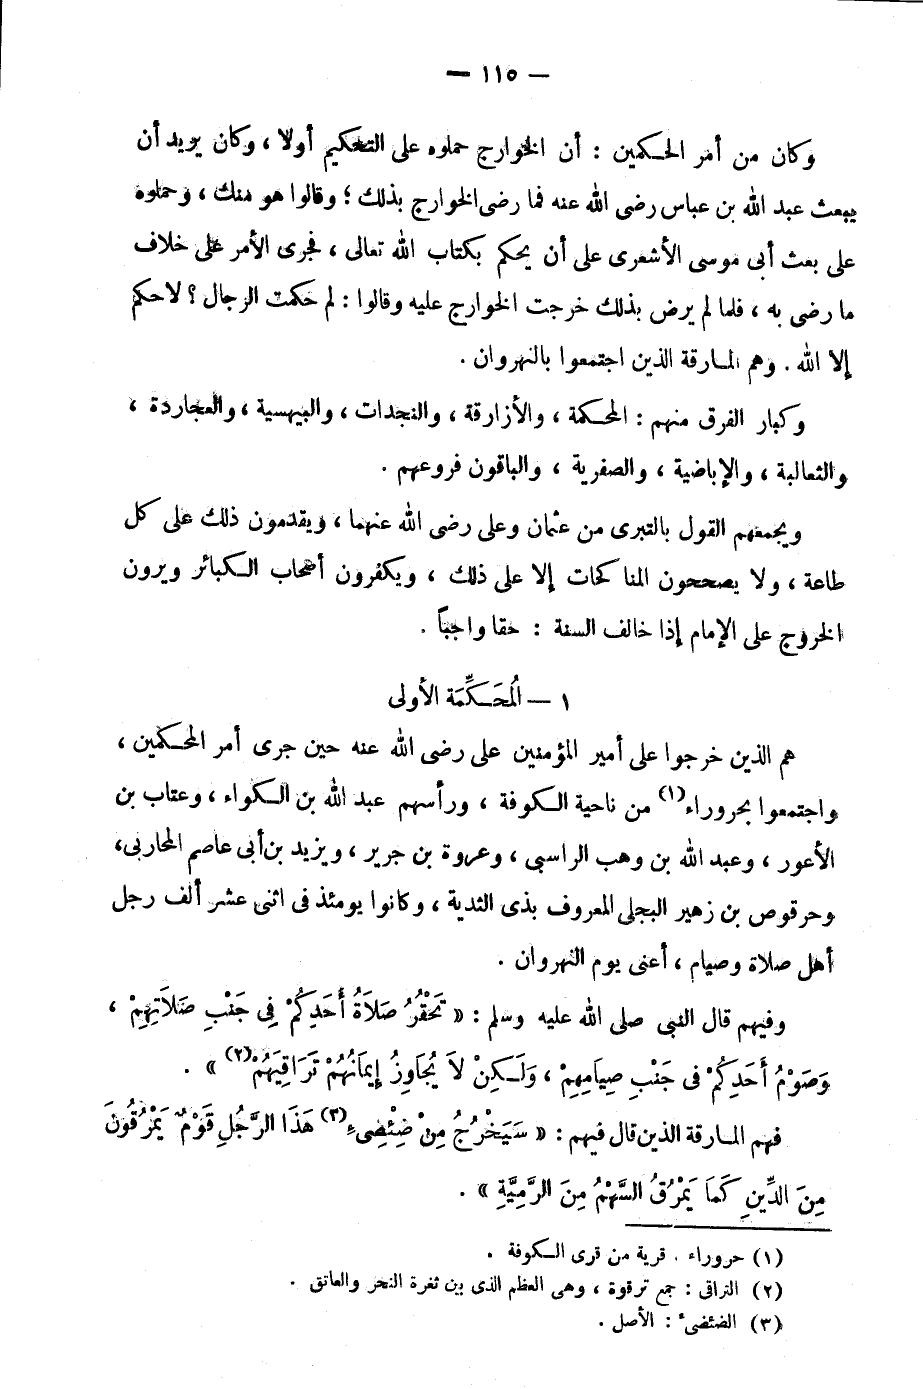 — ١١٥ —
وكان من أمر الحكمين : أن الخوارج حملوه على التحكيم أولا ، وكان يريد أن
يبعث عبد الله بن عباس رضى الله عنه فما رضى الخوارج بذلك ؛ وقالوا هو منك ، وحملوه
على بعث أبى موسى الأشعرى على أن يحكم بكتاب الله تعالى ، فجرى الأمر على خلاف
ما رضى به ، فلما لم يرض بذلك خرجت الخوارج عليه وقالوا : لم حكمت الرجال ؟ لا حكم
إلا الله . وهم المارقة الذين اجتمعوا بالنهروان .
وكبار الفرق منهم : المحكمة ، والأزارقة ، والنجدات ، والبيهسية ، والعجاردة ،
والثعالبة ، والإباضية ، والصفرية ، والباقون فروعهم .
ويجمعهم القول بالتبرى من عثمان وعلى رضى الله عنهما ، ويقدمون ذلك على كل
طاعة ، ولا يصححون المناكحات إلا على ذلك ، ويكفرون أصحاب الكبائر ويرون
الخروج على الإمام إذا خالف السنة : حقا واجباً .
١ — المُحَكِّمَة الأولى
هم الذين خرجوا على أمير المؤمنين على رضى الله عنه حين جرى أمر المحكمين ،
واجتمعوا بحروراء(١) من ناحية الكوفة ، ورأسهم عبد الله بن الكواء ، وعتاب بن
الأعور ، وعبد الله بن وهب الراسبى ، وعروة بن جرير ، ويزيد بن أبى عاصم المحاربى،
وحرقوص بن زهير البجلى المعروف بذى الثدية ، وكانوا يومئذ فى اثنى عشر ألف رجل
أهل صلاة وصيام ، أعنى يوم النهروان .
وفيهم قال النبى صلى الله عليه وسلم : « تَحْقُرُ صَلاَةُ أَحَدِكُمْ فِى جَنْبِ صَلاَتِهِمْ ،
وَصَوْمُ أَحَدِكُمْ فى جَنْبِ صِيامِهِمْ ، وَلَـكِنْ لاَ يُجَاوِزُ إِيمَانُهُمْ تَرَاقِيَهُمْ(٢) » .
فهم المارقة الذين قال فيهم : « سَيَخْرُجُ مِنْ ضِئْضِىءِ(٣) هَذَا الرَّجُلِ قَوْمٌ يَمْرُقُونَ
مِنَ الدِّينِ كَمَا يَمْرُقُ السَّهْمُ مِنَ الرَّمِيَّةِ » .
(١) حروراء . قرية من قرى الكوفة .
(٢) التراقى : جمع ترقوة ، وهى العظم الذى بين ثغرة النحر والعاتق .
(٣) الضئضىء : الأصل .